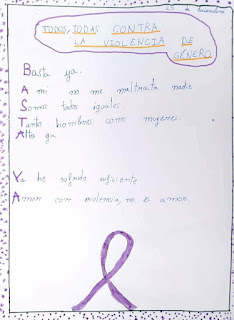 25 de Noviembre
TODOS, TODAS CONTRA
LA VIOLENCIA DE
GÉNERO
Basta ya.
A mi no me maltrata nadie
Somos todo iguales.
Tanto hombres como mujeres.
Alto ya
Ya he sufrido suficiente
Amor con violencia, no es amor.